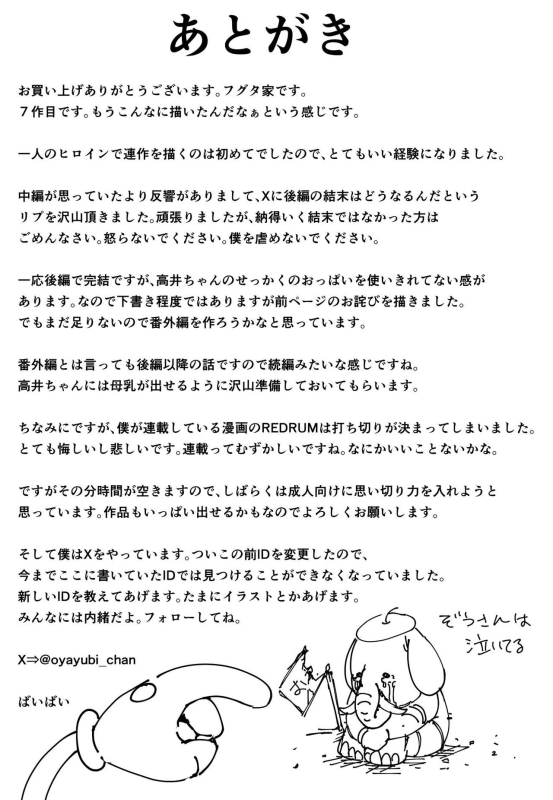 あとがき
お買い上げありがとうございます。フグタ家です。
７作目です。もうこんなに描いたんだなぁという感じです。
一人のヒロインで連作を描くのは初めてでしたので、とてもいい経験になりました。
中編が思っていたより反響がありまして、Xに後編の結末はどうなるんだという
リプを沢山頂きました。頑張りましたが、納得いく結末ではなかった方は
ごめんなさい。怒らないでください。僕を虐めないでください。
一応後編で完結ですが、高井ちゃんのせっかくのおっぱいを使いきれてない感が
あります。なので下書き程度ではありますが前ページのお詫びを描きました。
でもまだ足りないので番外編を作ろうかなと思っています。
番外編とは言っても後編以降の話ですので続編みたいな感じですね。
高井ちゃんには母乳が出せるように沢山準備しておいてもらいます。
ちなみにですが、僕が連載している漫画のREDRUMは打ち切りが決まってしまいました。
とても悔しいし悲しいです。連載ってむずかしいですね。なにかいいことないかな。
ですがその分時間が空きますので、しばらくは成人向けに思い切り力を入れようと
思っています。作品もいっぱい出せるかもなのでよろしくお願いします。
そして僕はXをやっています。ついこの前IDを変更したので、
今までここに書いていたIDでは見つけることができなくなっていました。
新しいIDを教えてあげます。たまにイラストとかあげます。
みんなには内緒だよ。フォローしてね。
X⇒@oyayubi_chan
ばいばい
ぞうさんは
泣いてる